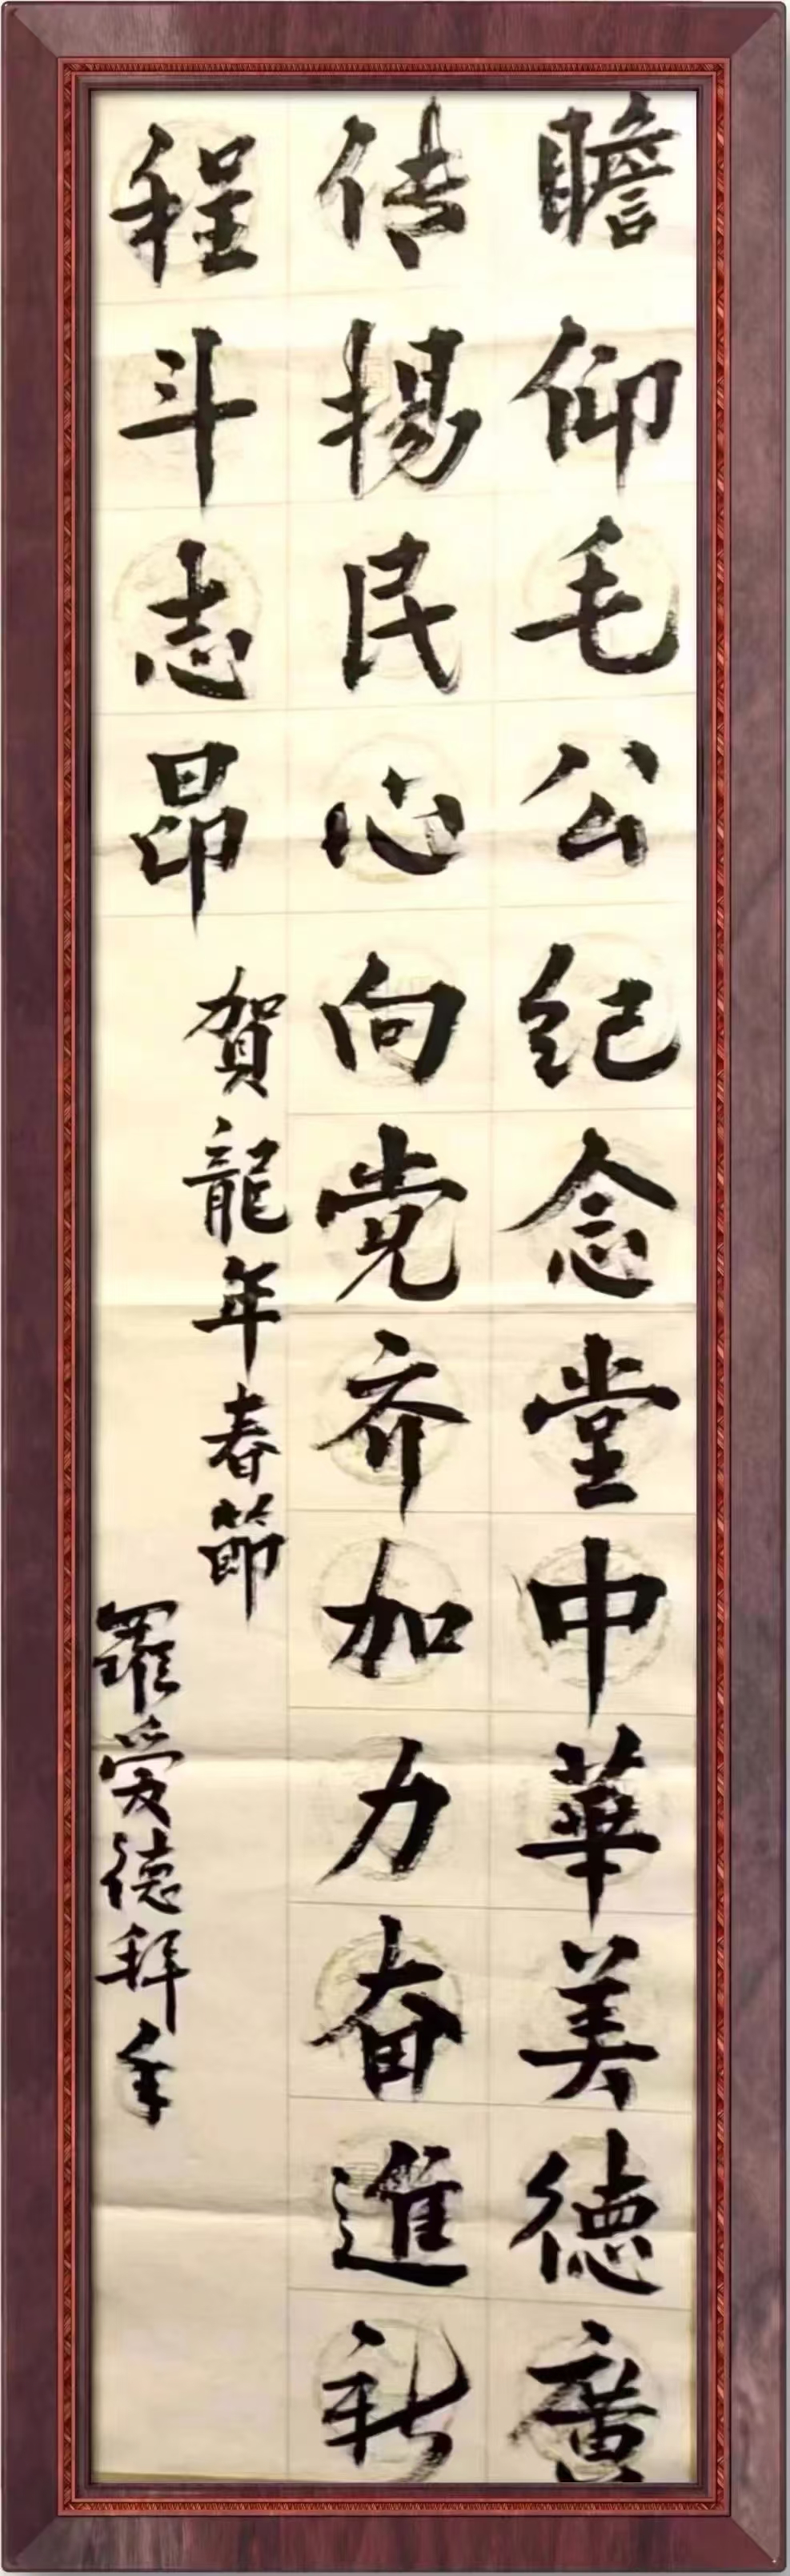 瞻仰毛公纪念堂中華美德廣
传揚民心向党齐加力奋進新
程斗志昂
賀龍年春節
羅爱德拜年